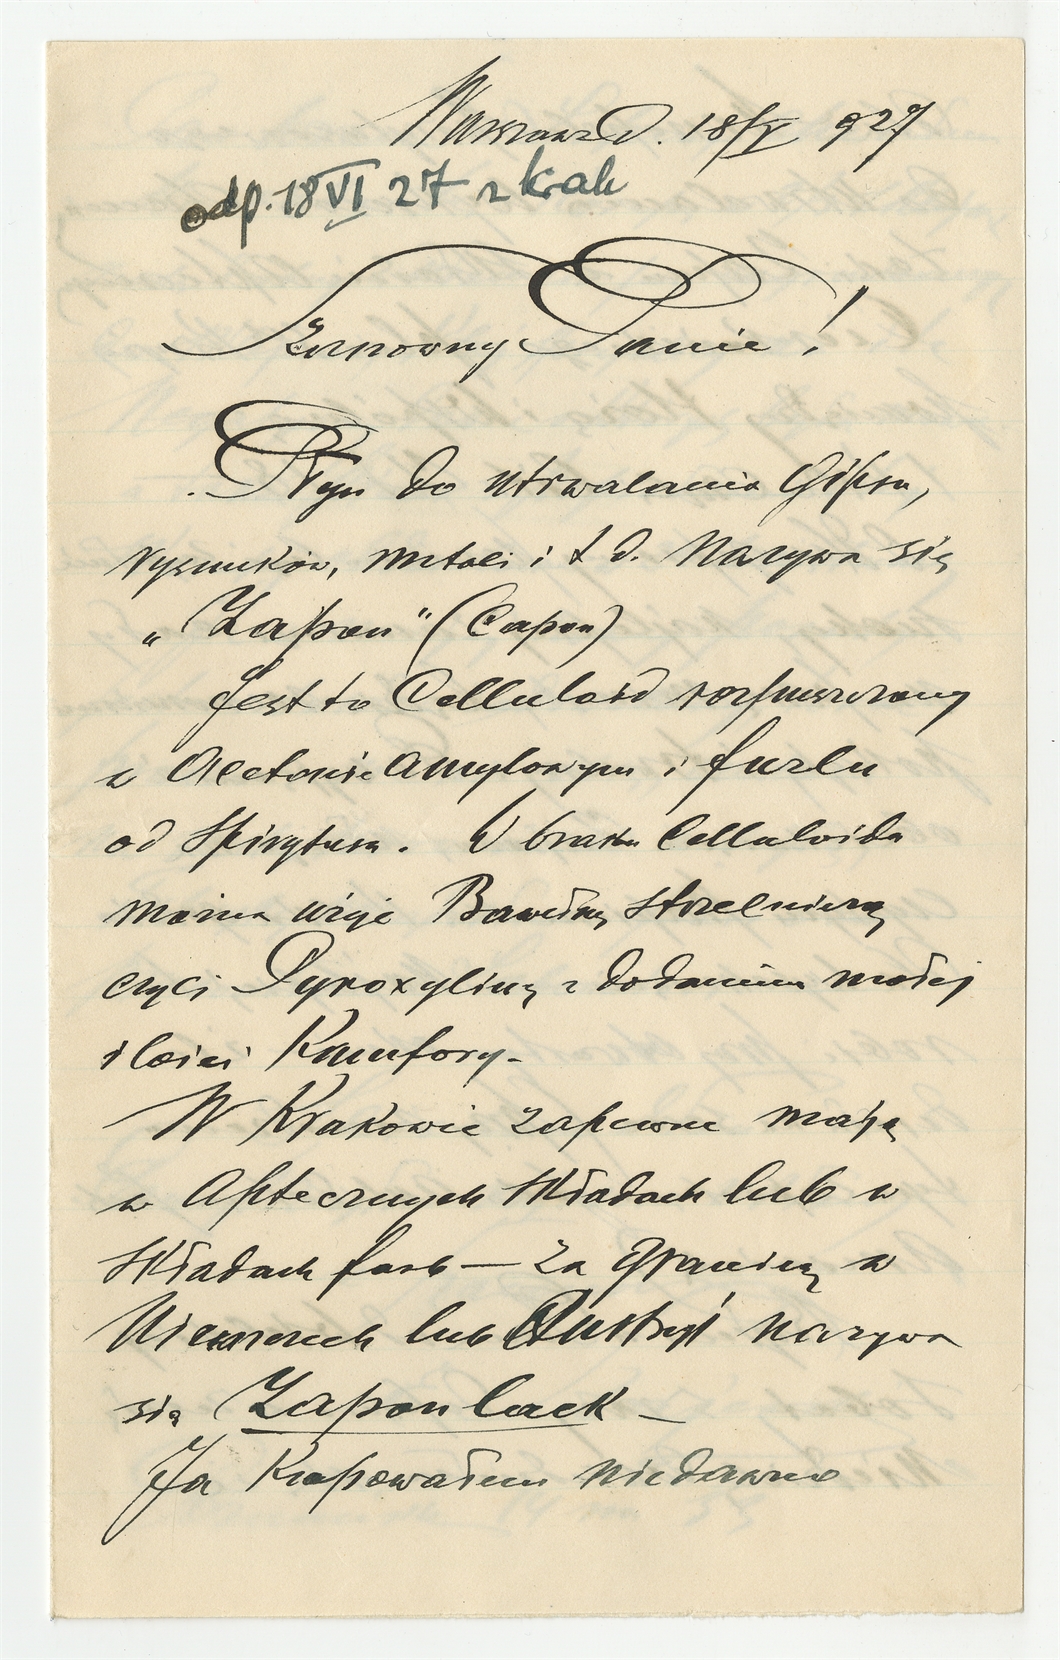 Warszawa d. 18/V 927
odp. 18 VI 27 z krak
Szanowny Panie!
Płyn do utrwalania Gipsu,
rysunków, metali i t d. Nazywa się
„Zapon" (Capon)
Jest to Celluloid rozpuszczony
w Acetonie Amylowym i fuzlu
od Spirytusu. W braku Celluloidu
można użyć Bawełnę strzelniczą
czyli Pyroxylinę z dodaniem małej
ilości Kamfory -
W Krakowie zapewne mają
w Aptecznych składach lub w
składach farb — za granicą w
Niemczech lub Austryi nazywa
się Zapon lack —
Ja kupowałem niedawno